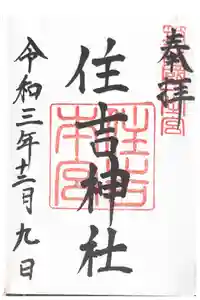 奉拝
住吉神社
令和三年十二月九日